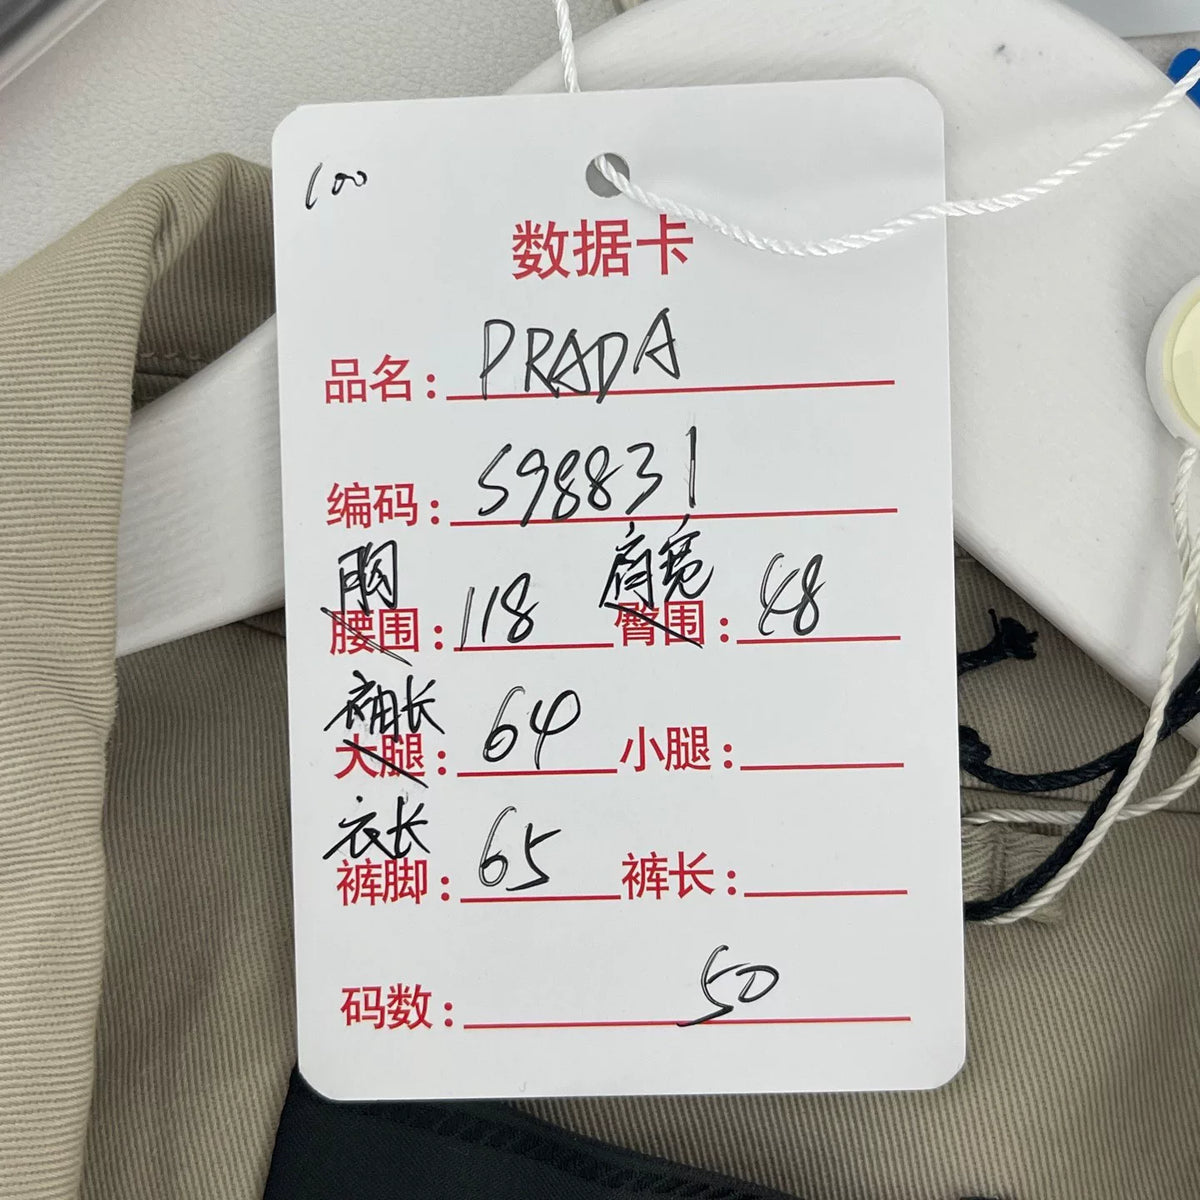 100
数据卡
品名: PRADA
编码: S98831
胸 肩宽
腰围: 118 臀围: 48
袖长
大腿: 64 小腿:
衣长
裤脚: 65 裤长:
码数: 50